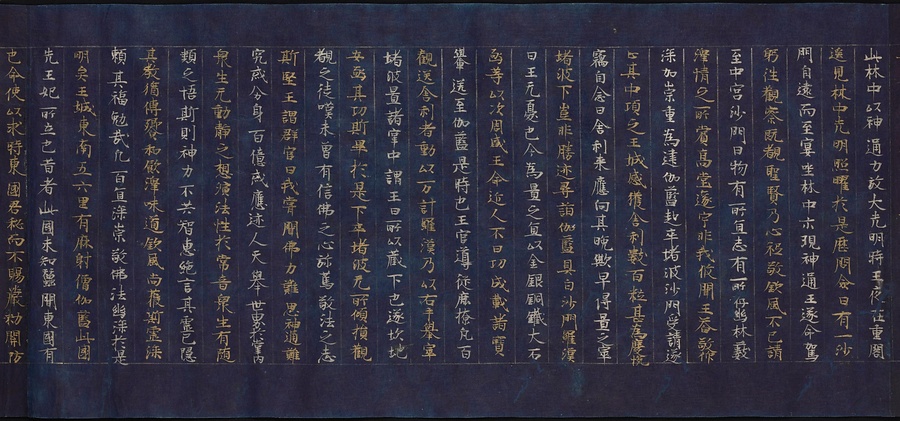 此林中以神通力放大光明時王夜在重閣
遙見林中光明照曜於是歷問僉曰有一沙
門自遠而至宴坐林中示現神通王遂命駕
躬往觀察既覩聖賢乃心祇敬欽風不已請
至中宮沙門曰物有所宜志有所在幽林藪
澤情之所賞高堂邃宇非我攸聞王益敬仰
深加崇重為建伽藍起窣堵波沙門受請遂
止其中頃之王城感獲舍利數百粒甚為慶悅
竊自念曰舍利來應何其晚歟早得置之窣
堵波下豈非勝迹尋詣伽藍具白沙門羅漢
曰王无憂也今為置之宜以金銀銅鐵大石
函等以次周盛王命匠人不日功成載諸寶
轝送至伽藍是時也王宮導從庶僚凡百
觀送舍利者動以万計羅漢乃以右手舉窣
堵波置諸掌中謂王曰可以藏下也遂坎地
安函其功斯畢於是下窣堵波无所傾損觀
覩之徒嘆未曾有信佛之心弥篤敬法之志
斯堅王謂群官曰我嘗聞佛力難思神通難
究或分身百億或應迹人天舉世界於掌內
衆生无動靜之想演法性於常音衆生有隨
類之悟斯則神力不共智惠絶言其靈已隱
其教猶傳飡和飲澤味道欽風尚獲斯靈深
賴其福勉哉凡百宜深崇敬佛法幽深於是
明矣王城東南五六里有麻射僧伽藍此國
先王妃所立也昔者此國未知蠶聞東國有
也命使以求時東國君祕而不賜嚴勑關防